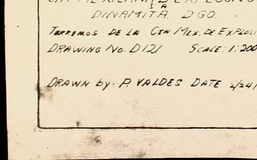 DINAMITA, DGO.
TERRENOS DE LA CIA MEX. DE EXPLOSI
DRAWING No. D121 SCALE: 1:200
DRAWN by: P. VALDES DATE 2/24/